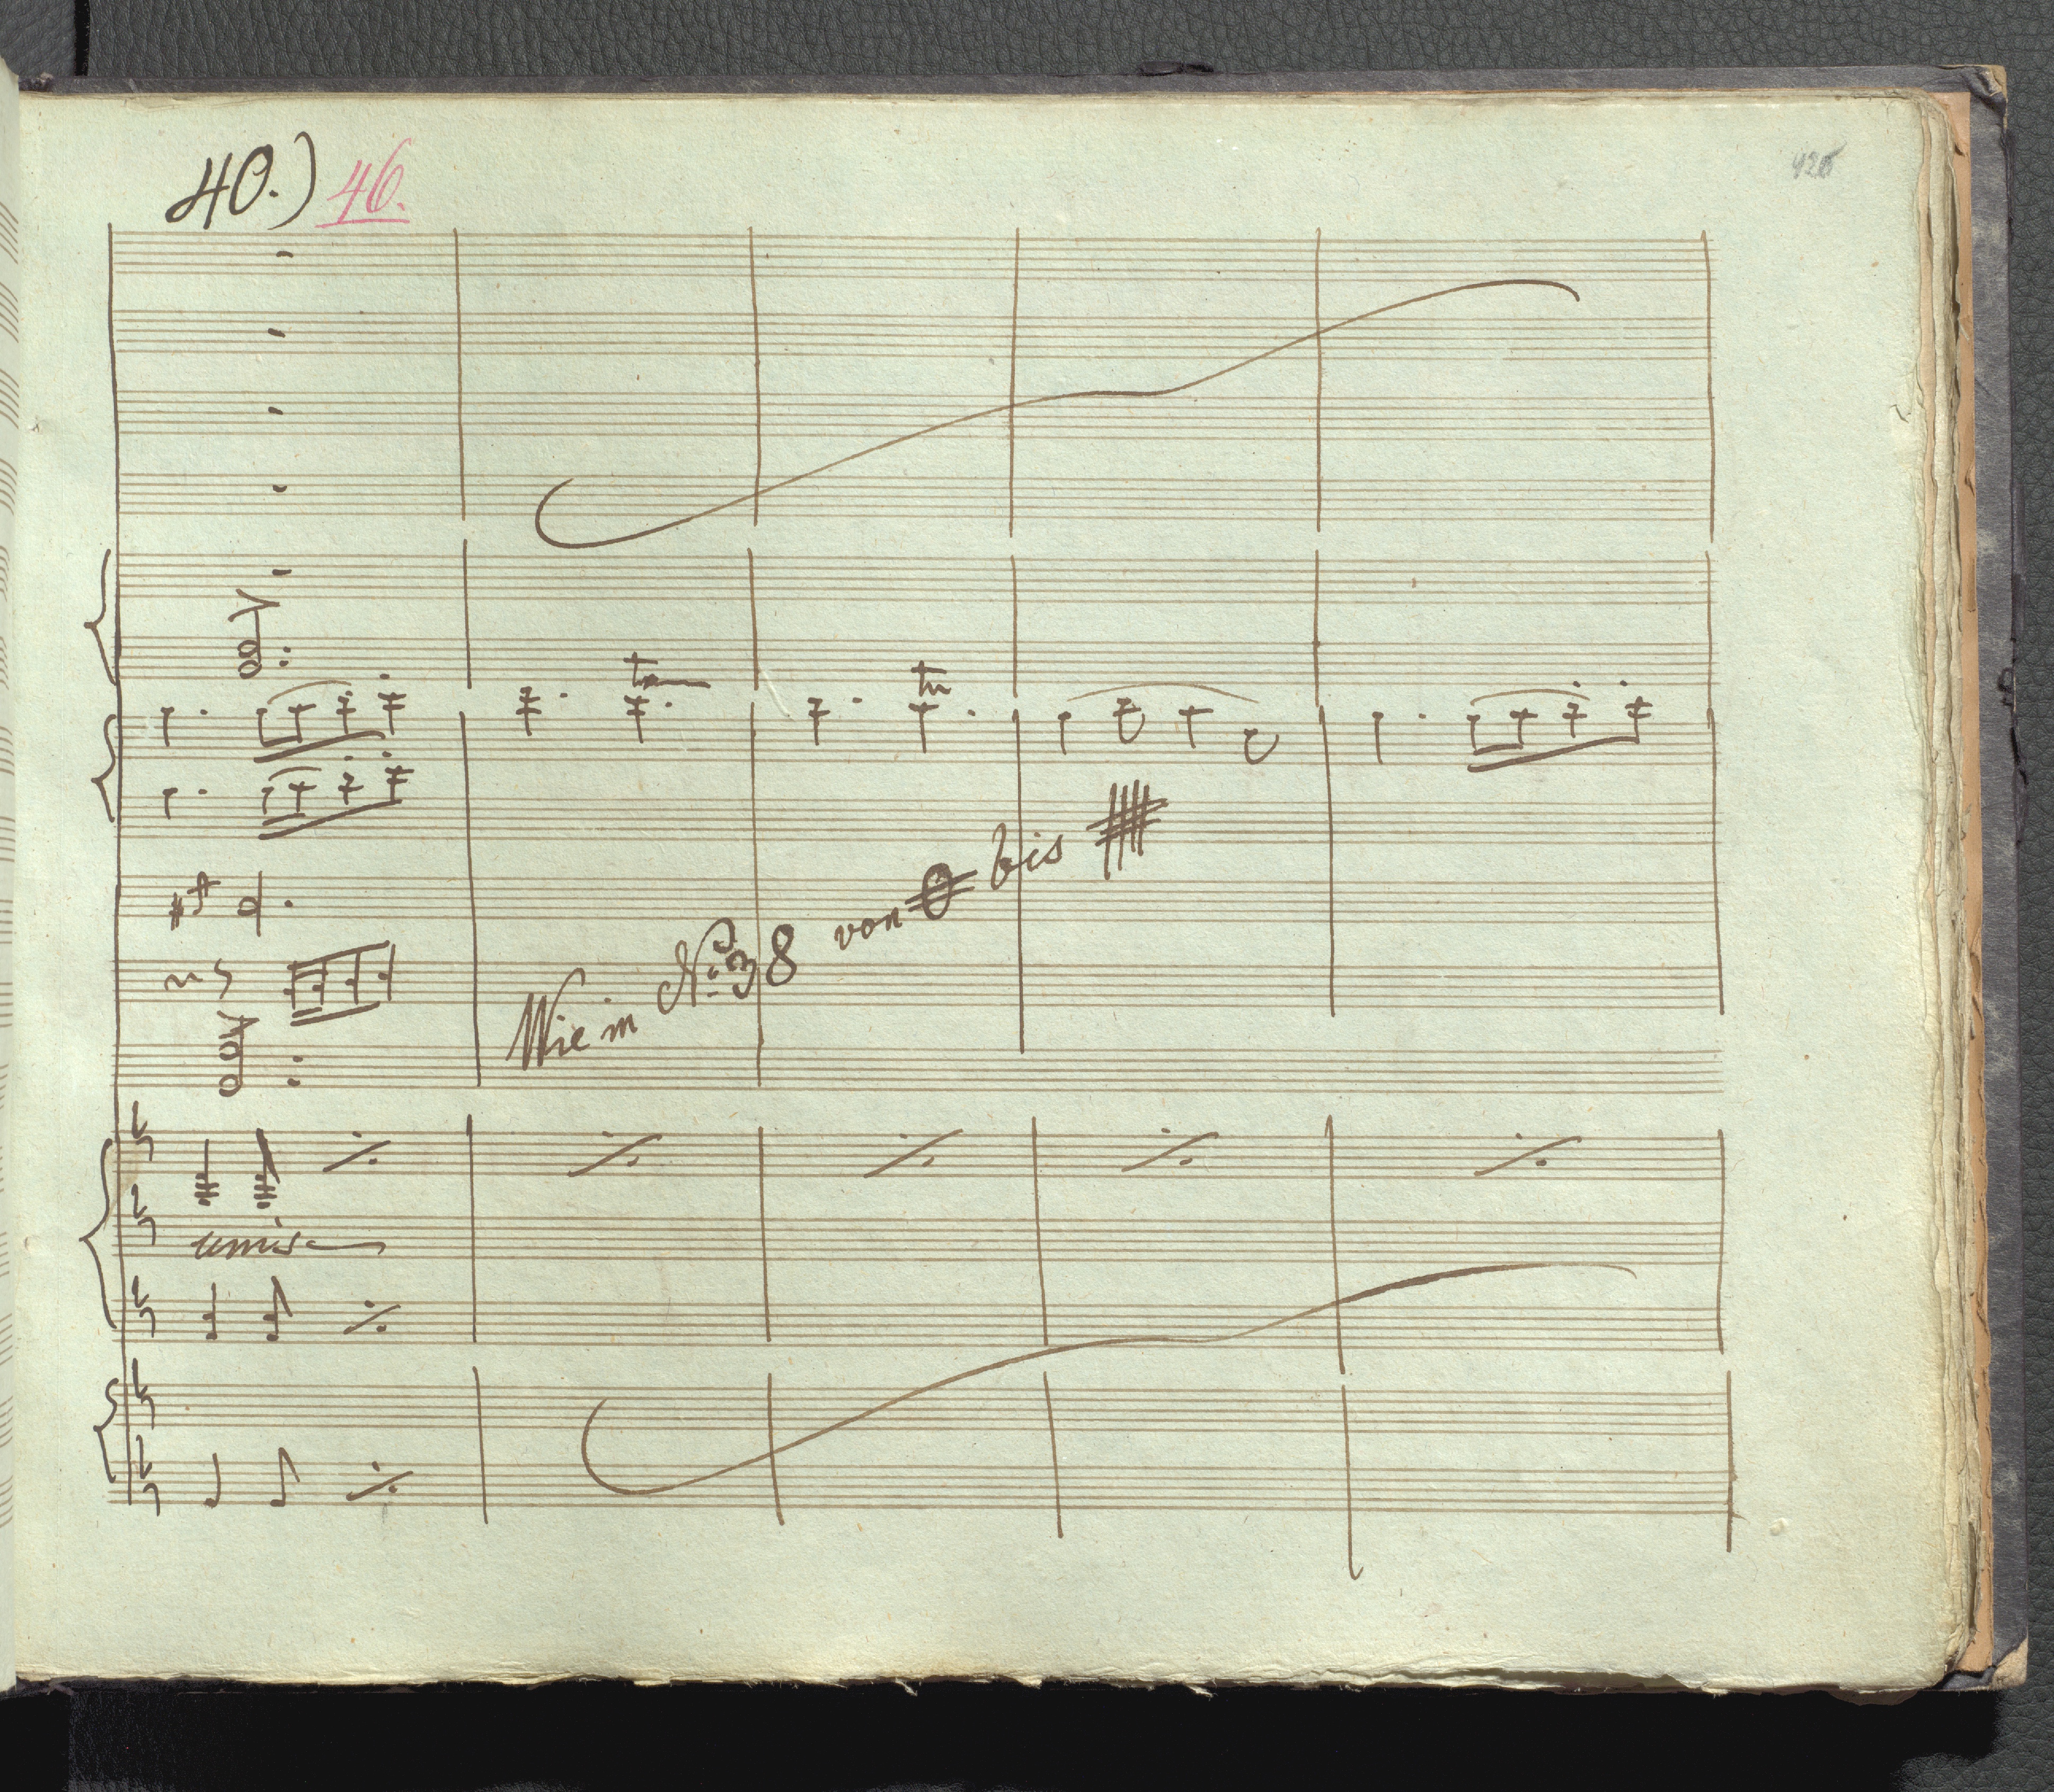 40.) 46.
tr
tr
Wie in No. 38 von bis
unis